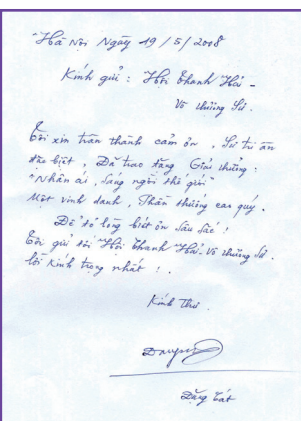 "Hà Nội Ngày 19/5/2008
Kính gửi : Hội Thanh Hải -
Vô thường Sư.
Tôi xin trân thành cảm ơn, Sự tri ân
đặc biệt, Đã trao tặng Giải thưởng :
"Nhân ái, sáng ngời thế giới"
Một vinh danh, Phần thưởng cao quý.
Để tỏ lòng biết ơn sâu sắc !
Tôi gửi tới "Hội Thanh Hải - Vô thường Sư.
lời kính trọng nhất !.
Kính Thư
Đặng Tất